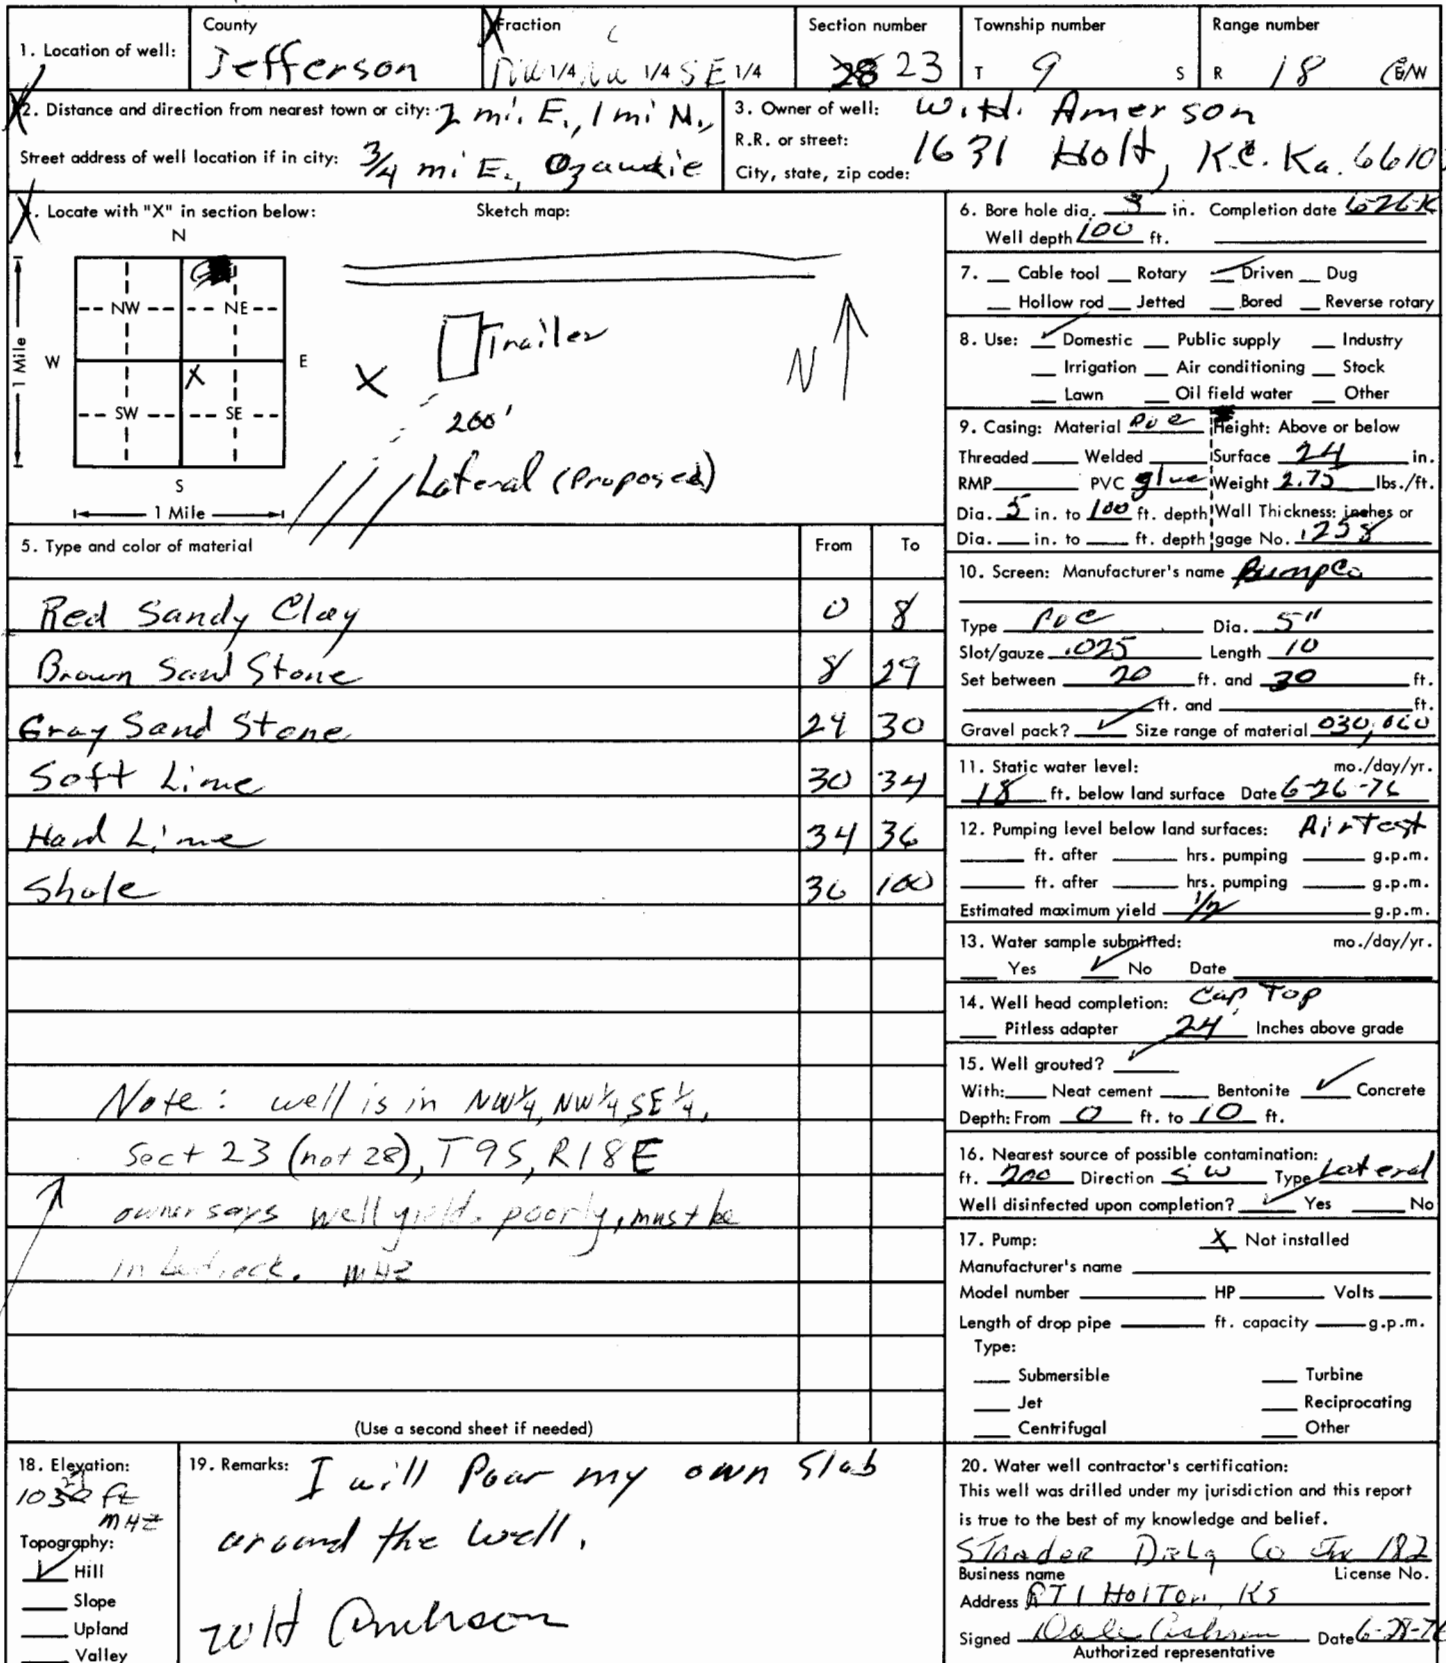 1. Location of well:
County
Jefferson
Fraction
NW 1/4 NW 1/4 SE 1/4
Section number
28 23
Township number
T 9 S
Range number
R 18 E/W
2. Distance and direction from nearest town or city: 2 mi. E., 1 mi N.,
Street address of well location if in city: 3/4 mi E., Ozawkie
3. Owner of well: W.H. Amerson
R.R. or street: 1631 Holt, K.C. Ka. 6610
City, state, zip code:
4. Locate with "X" in section below:
Sketch map:
N
NW NE
W E
X
SW SE
S
1 Mile
1 Mile
Trailer
X
N
200'
Lateral (Proposed)
5. Type and color of material From To
Red Sandy Clay 0 8
Brown Sand Stone 8 29
Gray Sand Stone 29 30
Soft Lime 30 34
Hard Lime 34 36
Shale 36 100
Note: well is in NW¼, NW¼, SE¼,
Sect 23 (not 28), T9S, R18E
owner says well yields poorly, must be
in bedrock. MHZ
(Use a second sheet if needed)
6. Bore hole dia. in. Completion date
Well depth 100 ft.
7. Cable tool Rotary ✓ Driven Dug
Hollow rod Jetted Bored Reverse rotary
8. Use: ✓ Domestic Public supply Industry
Irrigation Air conditioning Stock
Lawn Oil field water Other
9. Casing: Material PVC Height: Above or below
Threaded Welded Surface 24 in.
RMP PVC glue Weight 2.75 lbs./ft.
Dia. 5 in. to 100 ft. depth Wall Thickness: inches or
Dia. in. to ft. depth gage No. .258
10. Screen: Manufacturer's name
Type PVC Dia. 5"
Slot/gauze .025 Length 10
Set between 20 ft. and 30 ft.
ft. and ft.
Gravel pack? ✓ Size range of material
11. Static water level: mo./day/yr.
18 ft. below land surface Date 6-26-76
12. Pumping level below land surfaces: Air Test
ft. after hrs. pumping g.p.m.
ft. after hrs. pumping g.p.m.
Estimated maximum yield 1/2 g.p.m.
13. Water sample submitted: mo./day/yr.
Yes ✓ No Date
14. Well head completion: Cap Top
Pitless adapter 24 Inches above grade
15. Well grouted? ✓
With: Neat cement Bentonite ✓ Concrete
Depth: From 0 ft. to 10 ft.
16. Nearest source of possible contamination:
ft. 200 Direction SW Type Lateral
Well disinfected upon completion? ✓ Yes No
17. Pump: X Not installed
Manufacturer's name
Model number HP Volts
Length of drop pipe ft. capacity g.p.m.
Type:
Submersible Turbine
Jet Reciprocating
Centrifugal Other
18. Elevation:
ft
MHZ
Topography:
✓ Hill
Slope
Upland
Valley
19. Remarks: I will Pour my own Slab
around the well.
WH
20. Water well contractor's certification:
This well was drilled under my jurisdiction and this report
is true to the best of my knowledge and belief.
Strader Drlg Co Inc 182
Business name License No.
Address RT 1 Holton, Ks
Signed Dale Date 6-28-76
Authorized representative